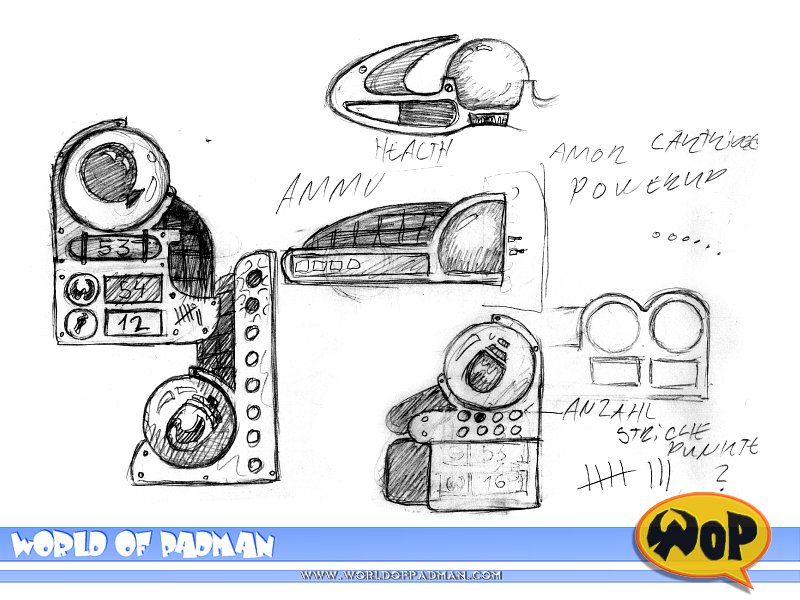 HEALTH
AMOR CARTRIDGE
POWERUP
AMMO
53
54
12
ANZAHL
STRICHE
PUNKTE
?
53
16
WORLD OF PADMAN
WOP
WWW.WORLDOFPADMAN.COM